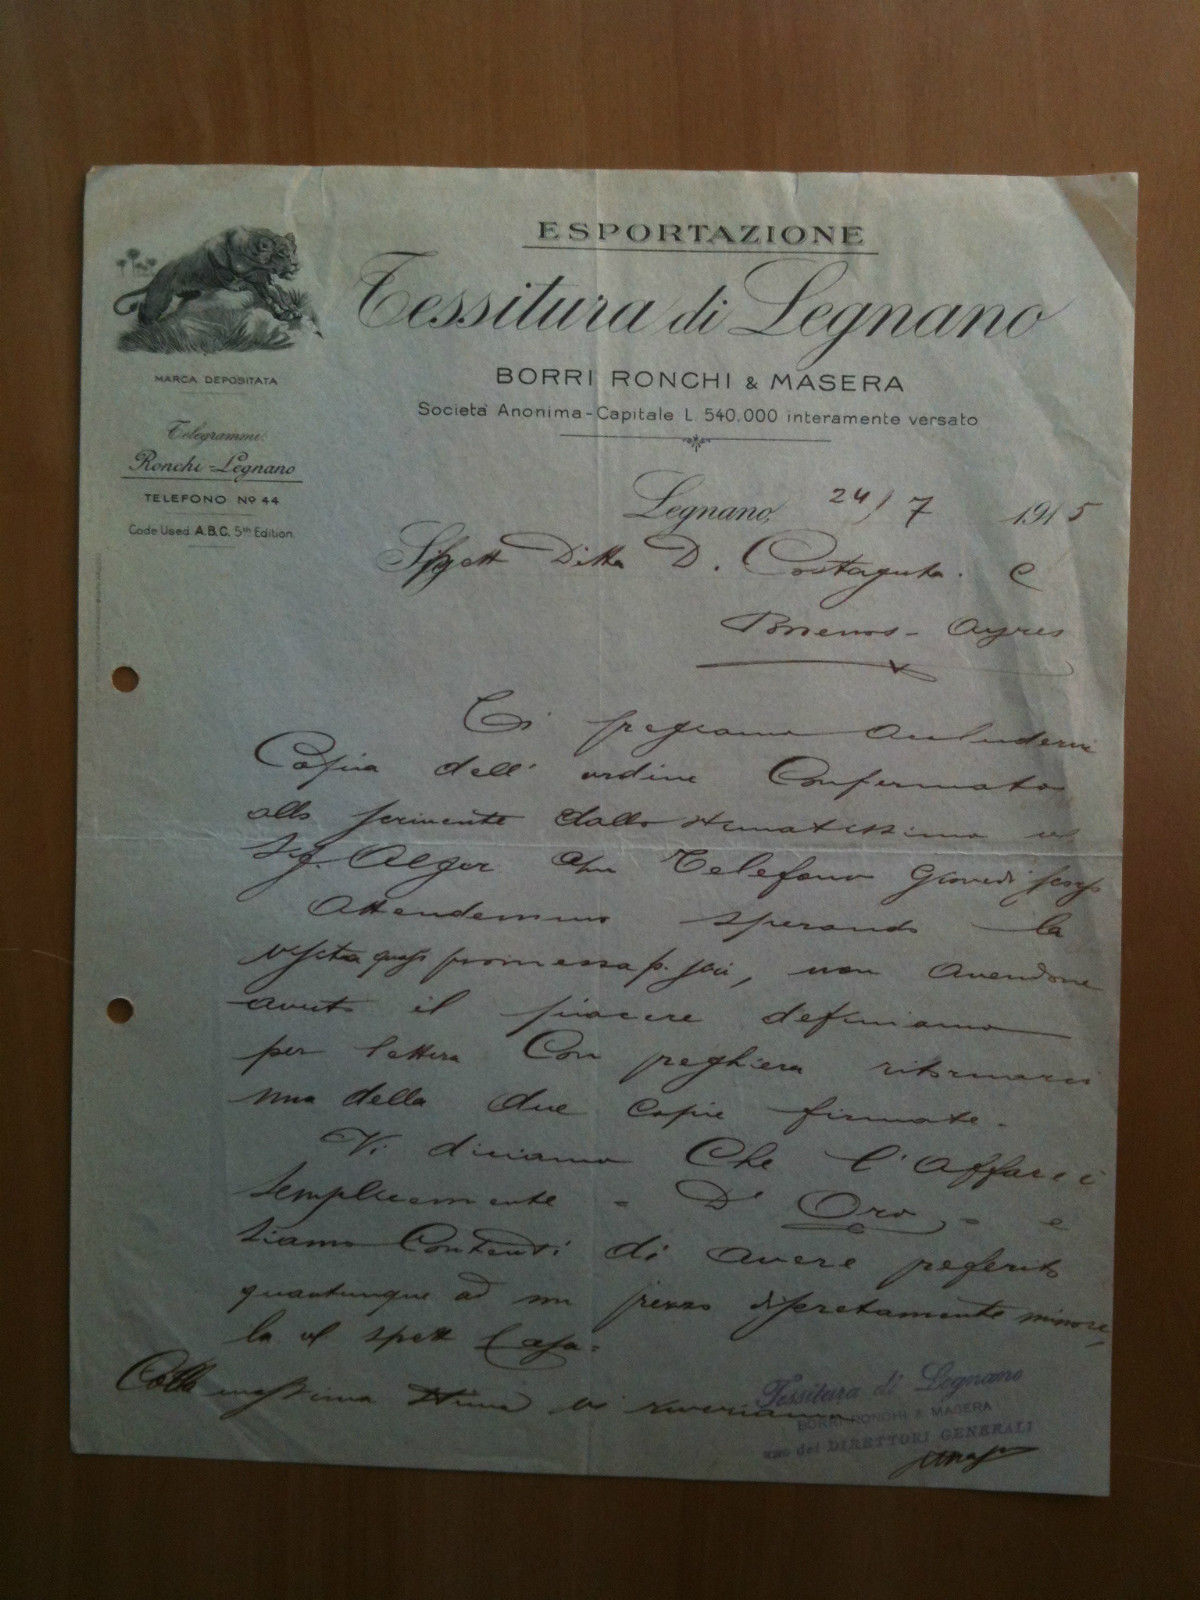 ESPORTAZIONE
Tessitura di Legnano
BORRI RONCHI & MASERA
Società Anonima - Capitale L. 540.000 interamente versato
MARCA DEPOSITATA
Telegrammi:
Ronchi - Legnano
TELEFONO Nº 44
Code Used A.B.C. 5th Edition.
Legnano, 24/7 1915
Spett Ditta D. Costaguta. C
Buenos - Ayres
Ci pregiamo accludervi
Copia dell' ordine Confermato
allo scrivente dallo stimatissimo
Sig. Alger Telefono Giovedi
Attendemmo sperando la
promessa non avendone
avuto il piacere definiamo
per lettera Con preghiera ritornarci
una della due copie firmate.
Vi diciamo Che l'Affare è
semplicemente - D' Oro - e
siamo Contenti di avere preferito
quantunque ad un prezzo discretamente minore,
la spett Casa.
Colla massima stima vi riveriamo
Tessitura di Legnano
BORRI RONCHI & MASERA
uno dei DIRETTORI GENERALI